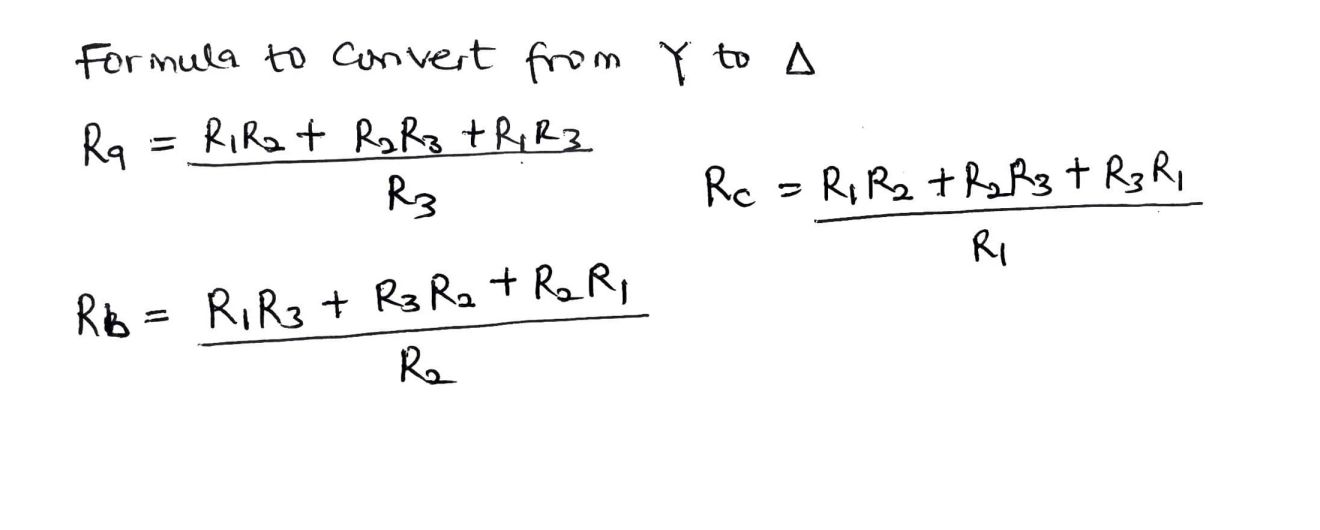 Formula to Convert from Y to Δ
Ra = R1R2 + R2R3 + R1R3 / R3
Rc = R1R2 + R2R3 + R3R1 / R1
Rb = R1R3 + R3R2 + R2R1 / R2